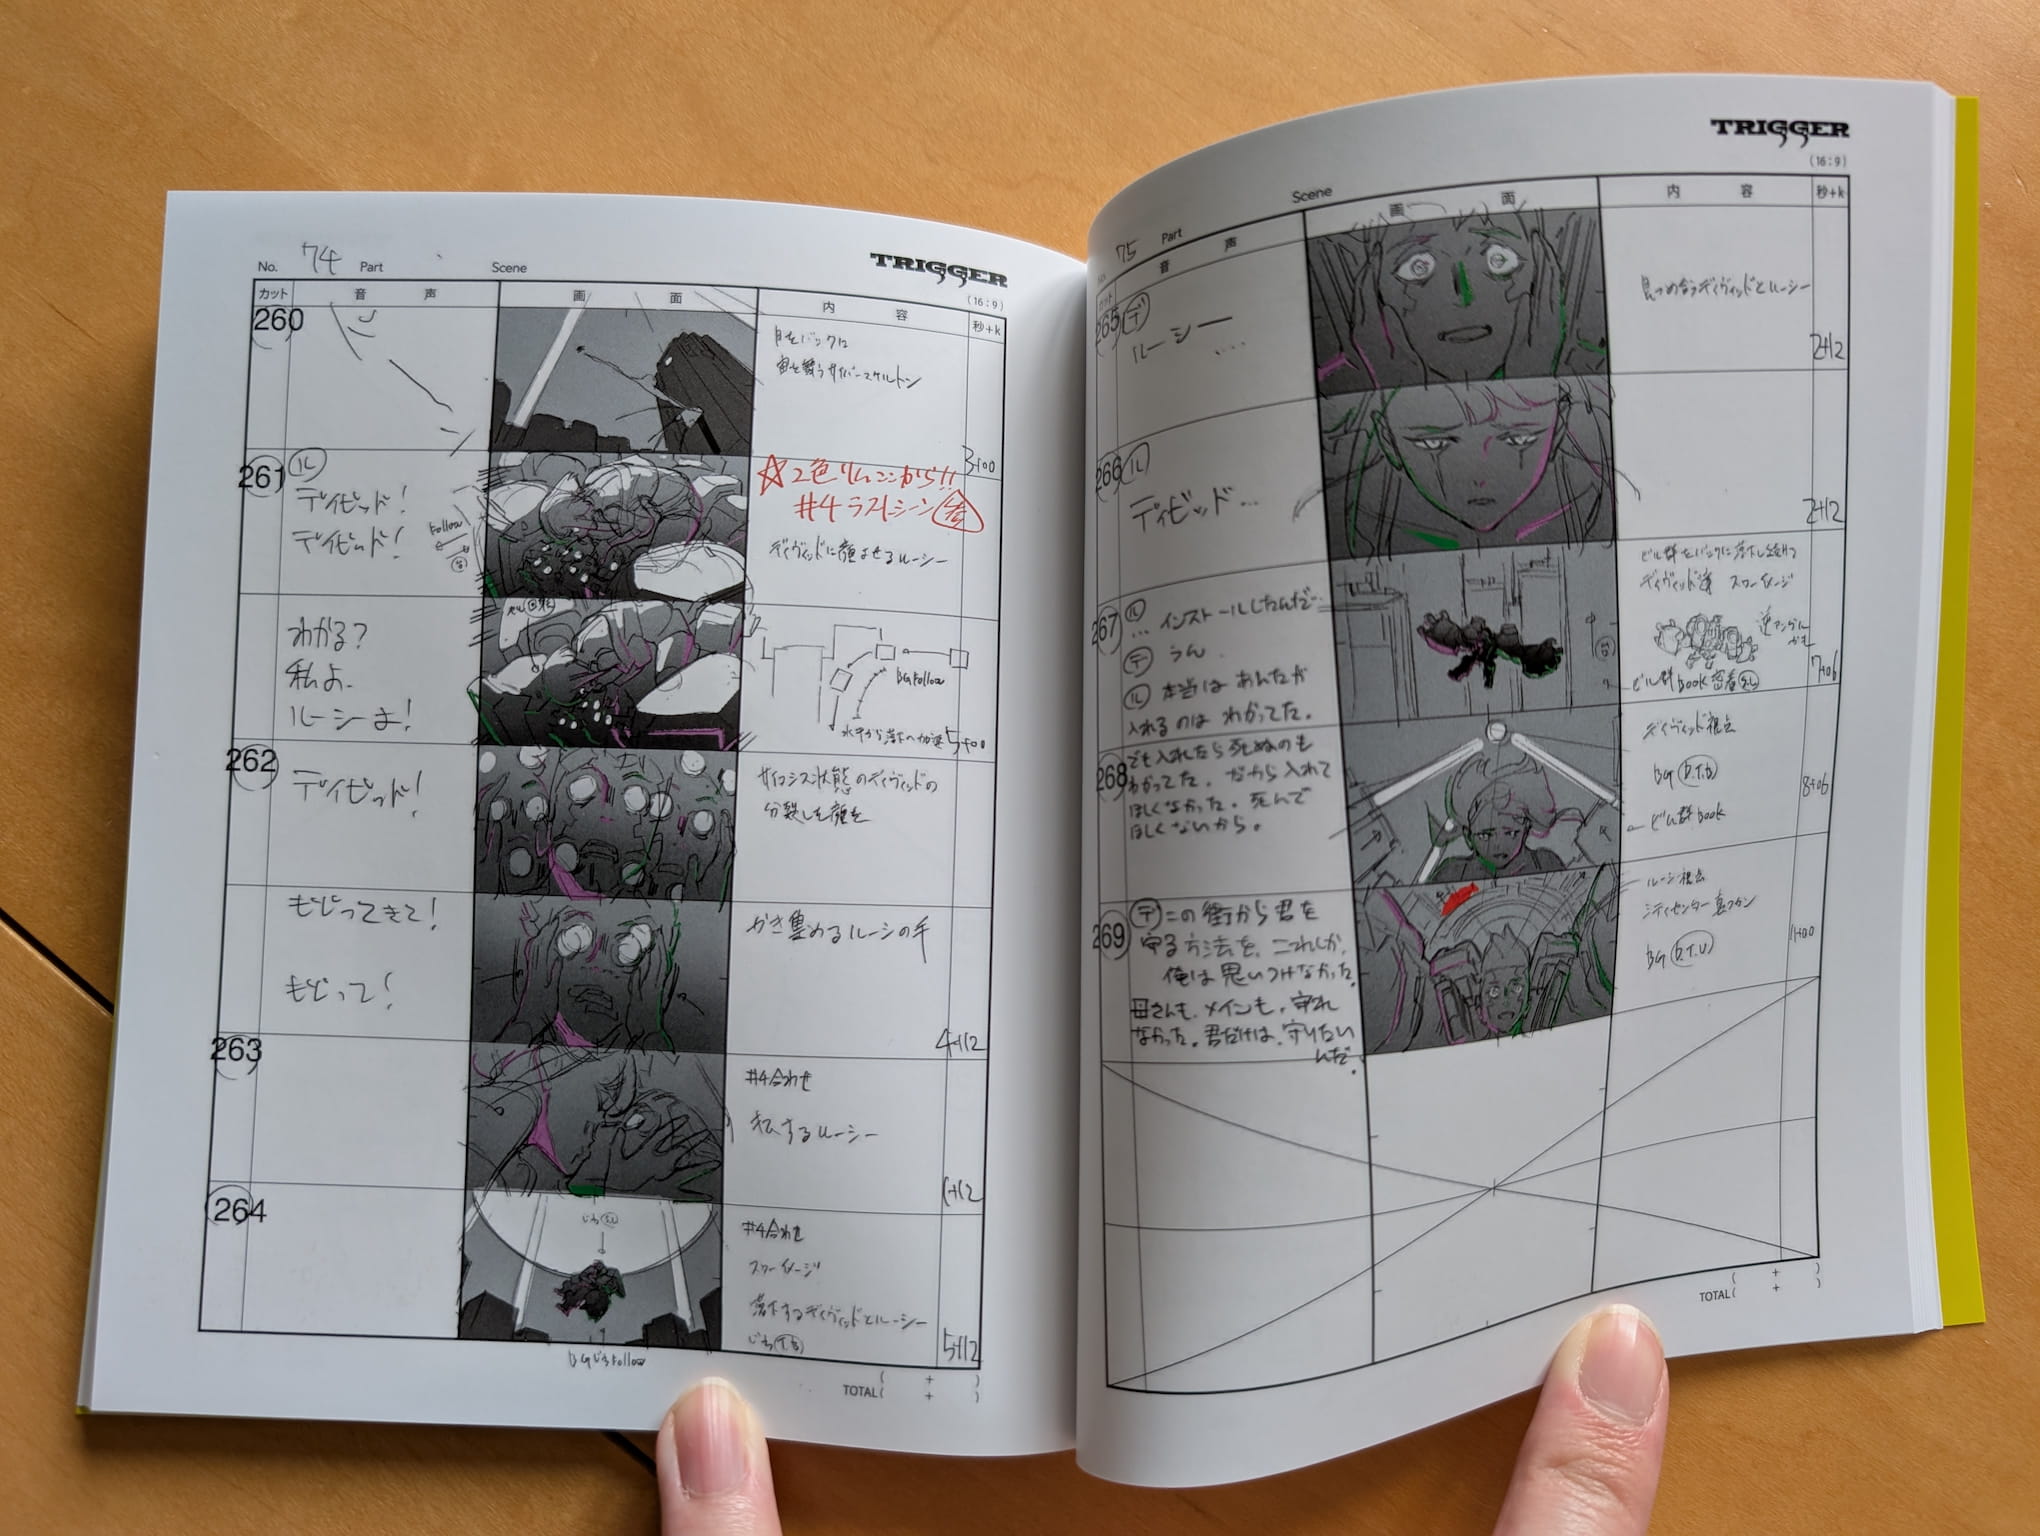 No. 74 Part Scene
TRIGGER
(16:9)
カット 音 声 画 面 内 容 秒+k
260
月をバックに
宙を舞うサイバースケルトン
3+00
261
ル
デイビッド!
デイビッド!
Follow
☆2色リムここから!!
#4ラストシーン
デイヴィッドに顔よせるルーシー
わかる?
私よ、
ルーシーよ!
BG Follow
水平から落下へ加速
5+00
262
デイビッド!
サイコシス状態のデイヴィッドの
分裂した顔を
もどってきて!
もどって!
かき集めるルーシーの手
4+12
263
#4合わせ
私するルーシー
1+12
264
じわ
#4合わせ
スローイメージ
落下するデイヴィッドとルーシー
じわ(T.B)
5+12
BGじわFollow
TOTAL( + )
( + )
No. 75 Part Scene
TRIGGER
(16:9)
カット 音 声 画 面 内 容 秒+k
265
デ
ルーシー
....
見つめ合うデイヴィッドとルーシー
2+12
266
ル
デイビッド...
2+12
267
ル
...インストールしたんだ...
デ
うん.
ル 本当は あんたが
入れるのは わかってた.
ビル群をバックに落下し続ける
デイヴィッド達 スローイメージ
逆アングル
ビル群 BOOK 密着
7+06
268
でも入れたら死ぬのも
わかってた. だから入れて
ほしくなかった. 死んで
ほしくないから.
デイヴィッド視点
BG(D.T.B)
ビル群 BOOK
8+06
269
デ この街から君を
守る方法を、これしか、
俺は思いつけなかった.
母さんも、メインも、守れ
なかった. 君だけは、守りたい
んだ.
ルーシー視点
シティセンター真フカン
BG(D.T.U)
11+00
TOTAL( + )
( + )